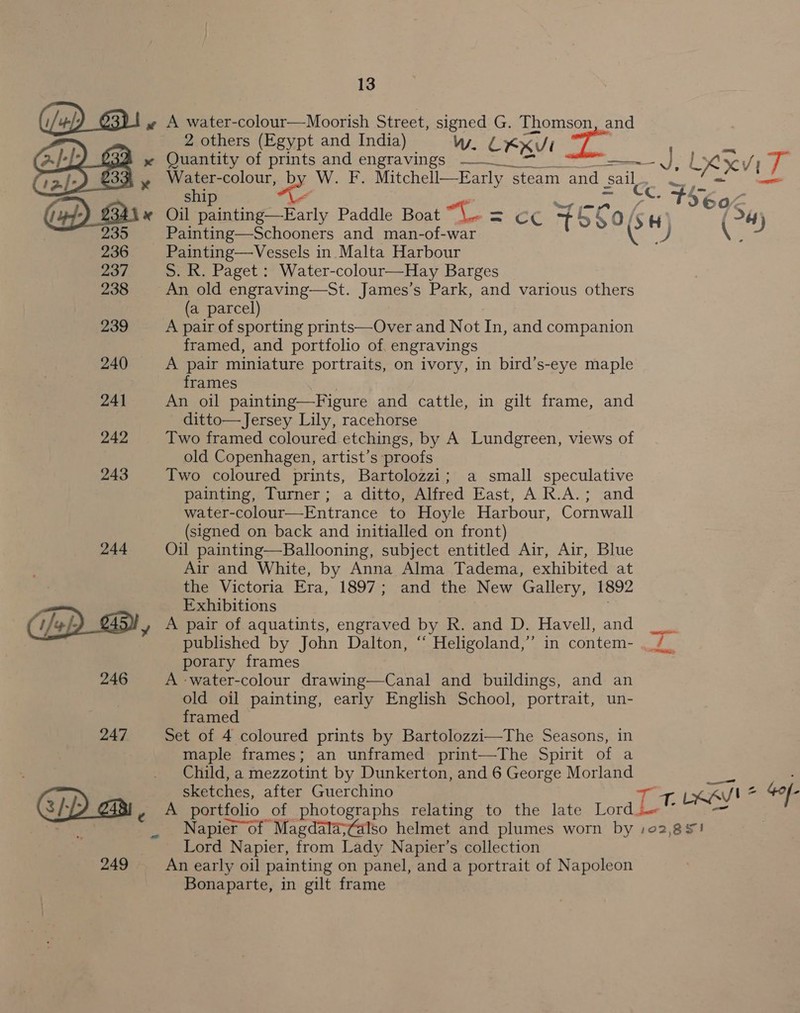 13
231 A water-colour—Moorish Street, signed G. Thomson, and
2 others (Egypt and India)
232 Quantity of prints and engravings
233 Water-colour, by W. F. Mitchell—Early steam and sail
ship
234 Oil painting—Early Paddle Boat
235 Painting—Schooners and man-of-war
236 Painting—Vessels in Malta Harbour
237 S. R. Paget: Water-colour—Hay Barges
238 An old engraving—St. James's Park, and various others
(a parcel)
239 A pair of sporting prints—Over and Not In, and companion
framed, and portfolio of engravings
240 A pair miniature portraits, on ivory, in bird's-eye maple
frames
241 An oil painting—Figure and cattle, in gilt frame, and
ditto—Jersey Lily, racehorse
242 Two framed coloured etchings, by A Lundgreen, views of
old Copenhagen, artist's proofs
243 Two coloured prints, Bartolozzi; a small speculative
painting, Turner; a ditto, Alfred East, A R.A.; and
water-colour—Entrance to Hoyle Harbour, Cornwall
(signed on back and initialled on front)
244 Oil painting—Ballooning, subject entitled Air, Air, Blue
Air and White, by Anna Alma Tadema, exhibited at
the Victoria Era, 1897; and the New Gallery, 1892
Exhibitions
245 A pair of aquatints, engraved by R. and D. Havell, and
published by John Dalton, “ Heligoland,” in contem-
porary frames
246 A water-colour drawing—Canal and buildings, and an
old oil painting, early English School, portrait, un-
framed
247 Set of 4 coloured prints by Bartolozzi—The Seasons, in
maple frames; an unframed print—The Spirit of a
Child, a mezzotint by Dunkerton, and 6 George Morland
sketches, after Guerchino
248 A portfolio of photographs relating to the late Lord
Napier of Magdala, also helmet and plumes worn by 102,851
Lord Napier, from Lady Napier's collection
249 An early oil painting on panel, and a portrait of Napoleon
Bonaparte, in gilt frame